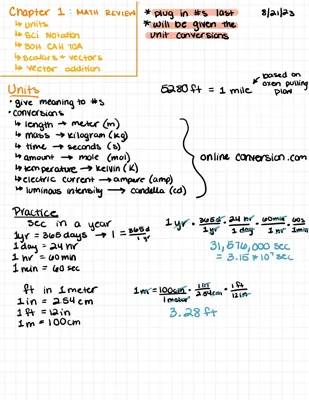 Chapter 1: MATH REVIEW
↳ units
↳ Sci Notation
↳ SOH CAH TOA
↳ Scalars + vectors
↳ vector addition
* plug in #s last
* will be given the
unit conversions
8/21/23
Units
• give meaning to #s
• conversions
↳ length → meter (m)
↳ mass → kilogram (kg)
↳ time → seconds (s)
↳ amount → mole (mol)
↳ temperature → kelvin (K)
↳ electric current → ampere (amp)
↳ luminous intensity → candella (cd)
5280 ft = 1 mile
based on
oxen pulling
plow
online conversion.com
Practice
sec in a year
1yr = 365 days → 1 = 365d/1yr
1 day = 24 hr
1 hr = 60 min
1 min = 60 sec
1 yr · 365d/1yr · 24 hr/1 day · 60min/1 hr · 60s/1min
31,536,000 sec
= 3.15 * 10⁷ sec
ft in 1 meter
1 in = 2.54 cm
1 ft = 12 in
1 m = 100cm
1 m · 100cm/1 meter · 1in/2.54cm · 1ft/12in
3.28 ft